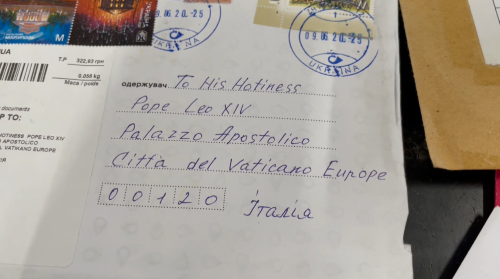 UA
T.P 522,63 грн
0.058 kg
Маса / poids
documents
P TO:
HOTINESS POPE LEO XIV
APOSTOLICO
L VATIKANO EUROPE
M
09.06 20.-25
UKRAINA
09.06 20.-25
UKRAINA
одержувач To His Hotiness
Pope Leo XIV
Palazzo Apostolico
Città del Vaticano Europe
00120 Італія